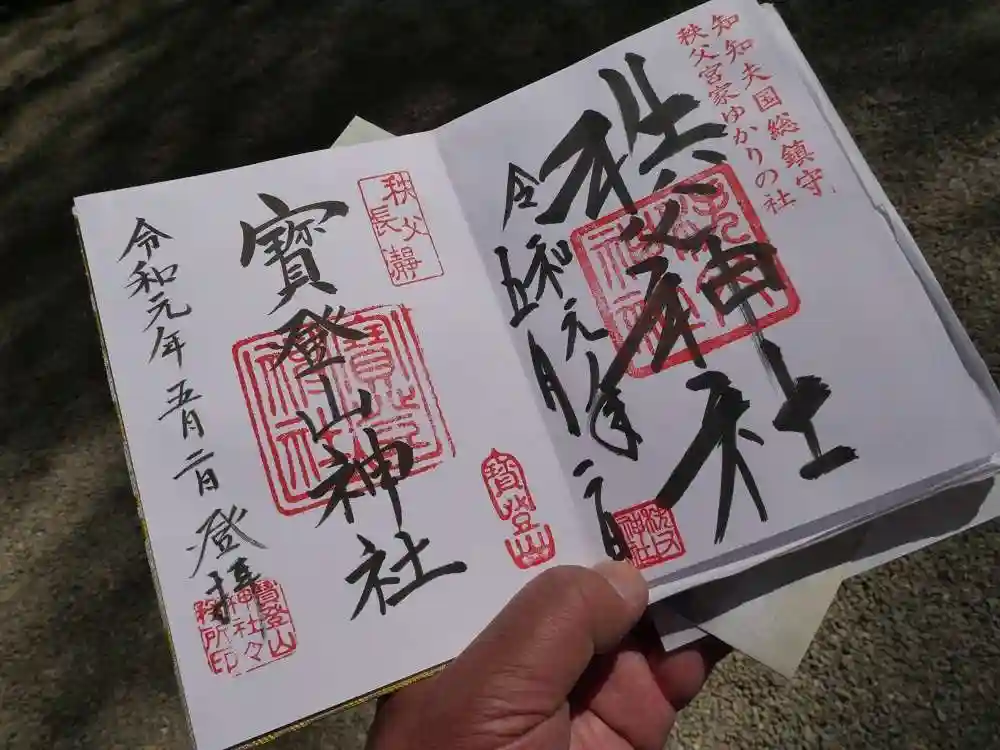 知知夫国総鎮守
秩父宮家ゆかりの社
秩父神社
令和元年
五月二日
秩父
神社
秩父
長瀞
寶登山神社
寶登山
令和元年五月二日登拝
寶登山
神社々
務所印